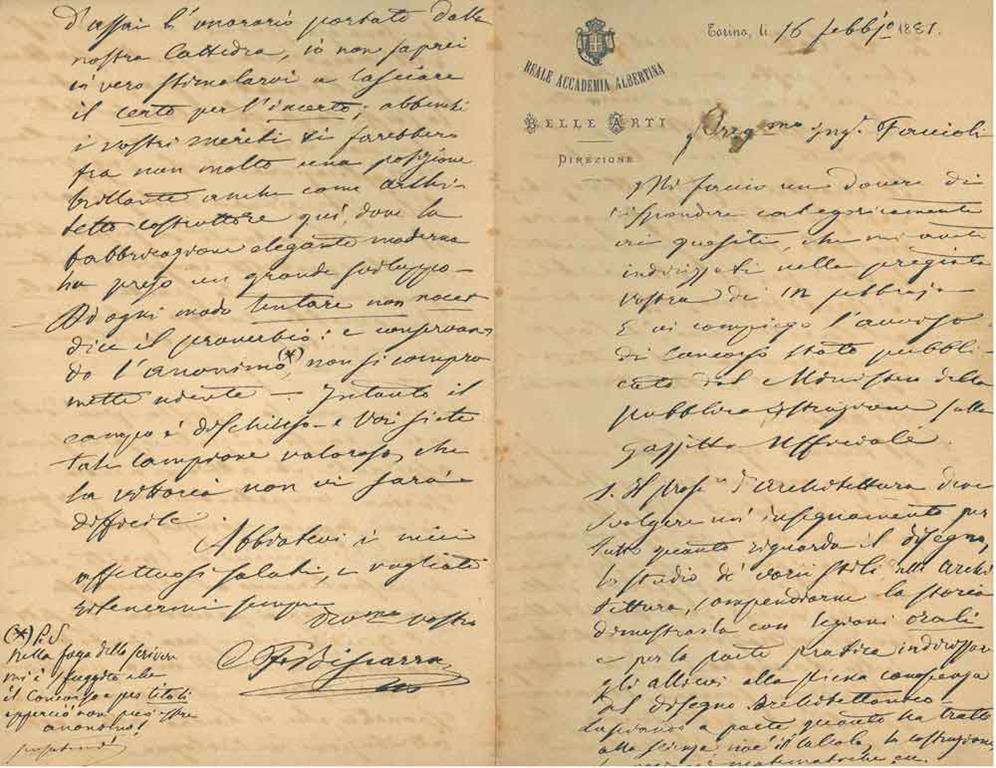 Torino, li 16 febbjo 1881.
REALE ACCADEMIA ALBERTINA
BELLE ARTI
DIREZIONE
Pregmo ingr.
Mi faccio un dovere di
rispondere categoricamente
ai quesiti, che mi avete
indirizzati nella pregiata
vostra di 12 febbrajo
E vi compiego l'avviso
di concorso stato pubbli
cato dal Ministero della
pubblica istruzione sulla
Gazzetta Ufficiale.
1. Il profr. d'Architettura deve
svolgere un insegnamento per
tutto quanto riguarda il disegno,
lo studio di varii stili Archi
tettura, compendiarne la storia
dimostrarla con lezioni orali
e per la parte pratica indirizzare
gli allievi alla piena conoscenza
del disegno Architettonico
Lasciando a parte quanto ha tratto
alla scienza il calcolo, la costruzione,
matematiche
d'assai l'onorario portato dalla
nostra Cattedra, io non saprei
in vero stimolarvi a lasciare
il certo per l'incerto; abbenchè
i vostri meriti vi farebbero
fra non molto una posizione
brillante anche come archi-
tetto costruttore qui, dove la
fabbricazione elegante moderna
ha preso un grande sviluppo -
Ad ogni modo tentare non nocet
dice il proverbio: e conservan
do l'anonimo (*), non si compro
mette niente - Intanto il
campo è dischiuso - e Voi siete
tale campione valoroso, che
la vittoria non vi sarà
difficile
Abbiatevi i miei
affettuosi saluti, e vogliate
ritenermi sempre
Devmo vostro
CF Biscarra
(*) P.S.
Nella foga dello scrivere
mi è sfuggito che
il Concorso è per titoli
epperciò non può essere
anonimo!